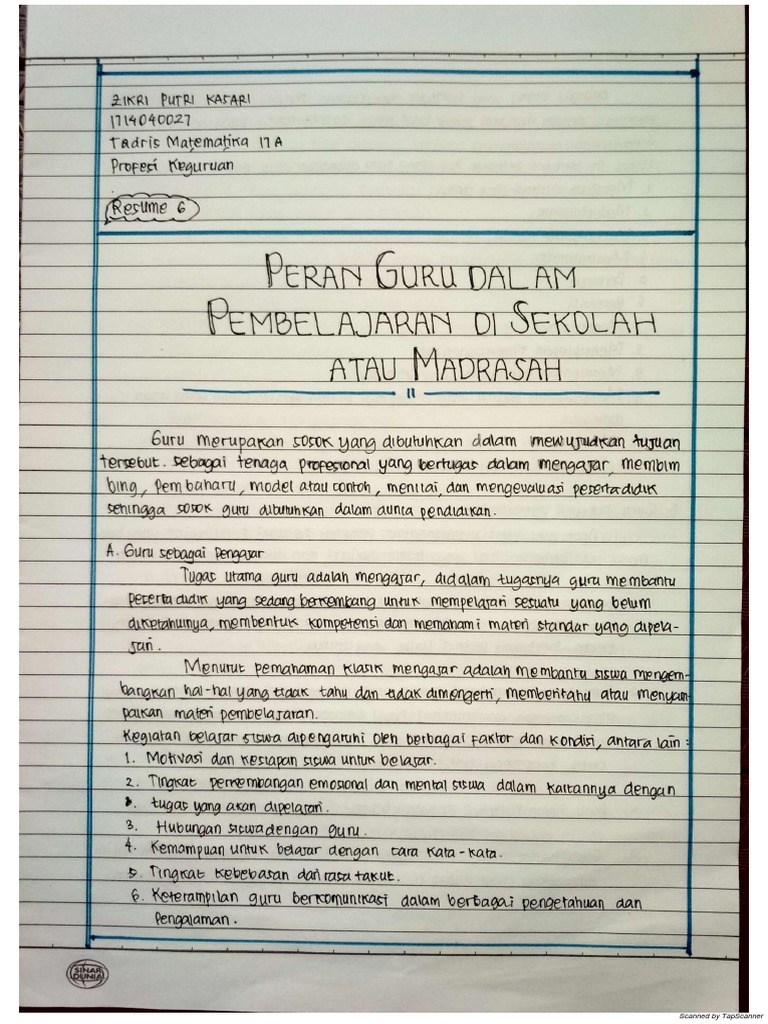 ZIKRI PUTRI KASARI
1714040027
Tadris Matematika 17 A
Profesi Keguruan
Resume 6
PERAN GURU DALAM
PEMBELAJARAN DI SEKOLAH
ATAU MADRASAH
Guru merupakan sosok yang dibutuhkan dalam mewujudkan tujuan
tersebut. sebagai tenaga profesional yang bertugas dalam mengajar, membim
bing, pembaharu, model atau contoh, menilai, dan mengevaluasi peserta didik
sehingga sosok guru dibutuhkan dalam dunia pendidikan.
A. Guru sebagai Pengajar
Tugas utama guru adalah mengajar, didalam tugasnya guru membantu
peserta didik yang sedang berkembang untuk mempelajari sesuatu yang belum
diketahuinya, membentuk kompetensi dan memahami materi standar yang dipela-
jari.
Menurut pemahaman klasik mengajar adalah membantu siswa mengem-
bangkan hal-hal yang tidak tahu dan tidak dimengerti, memberitahu atau menyam-
paikan materi pembelajaran.
Kegiatan belajar siswa dipengaruhi oleh berbagai faktor dan kondisi, antara lain :
1. Motivasi dan kesiapan siswa untuk belajar.
2. Tingkat perkembangan emosional dan mental siswa dalam kaitannya dengan
tugas yang akan dipelajari.
3. Hubungan siswa dengan guru.
4. Kemampuan untuk belajar dengan cara kata-kata.
5. Tingkat kebebasan dari rasa takut.
6. Keterampilan guru berkomunikasi dalam berbagai pengetahuan dan
pengalaman.
SINAR DUNIA
Scanned by TapScanner